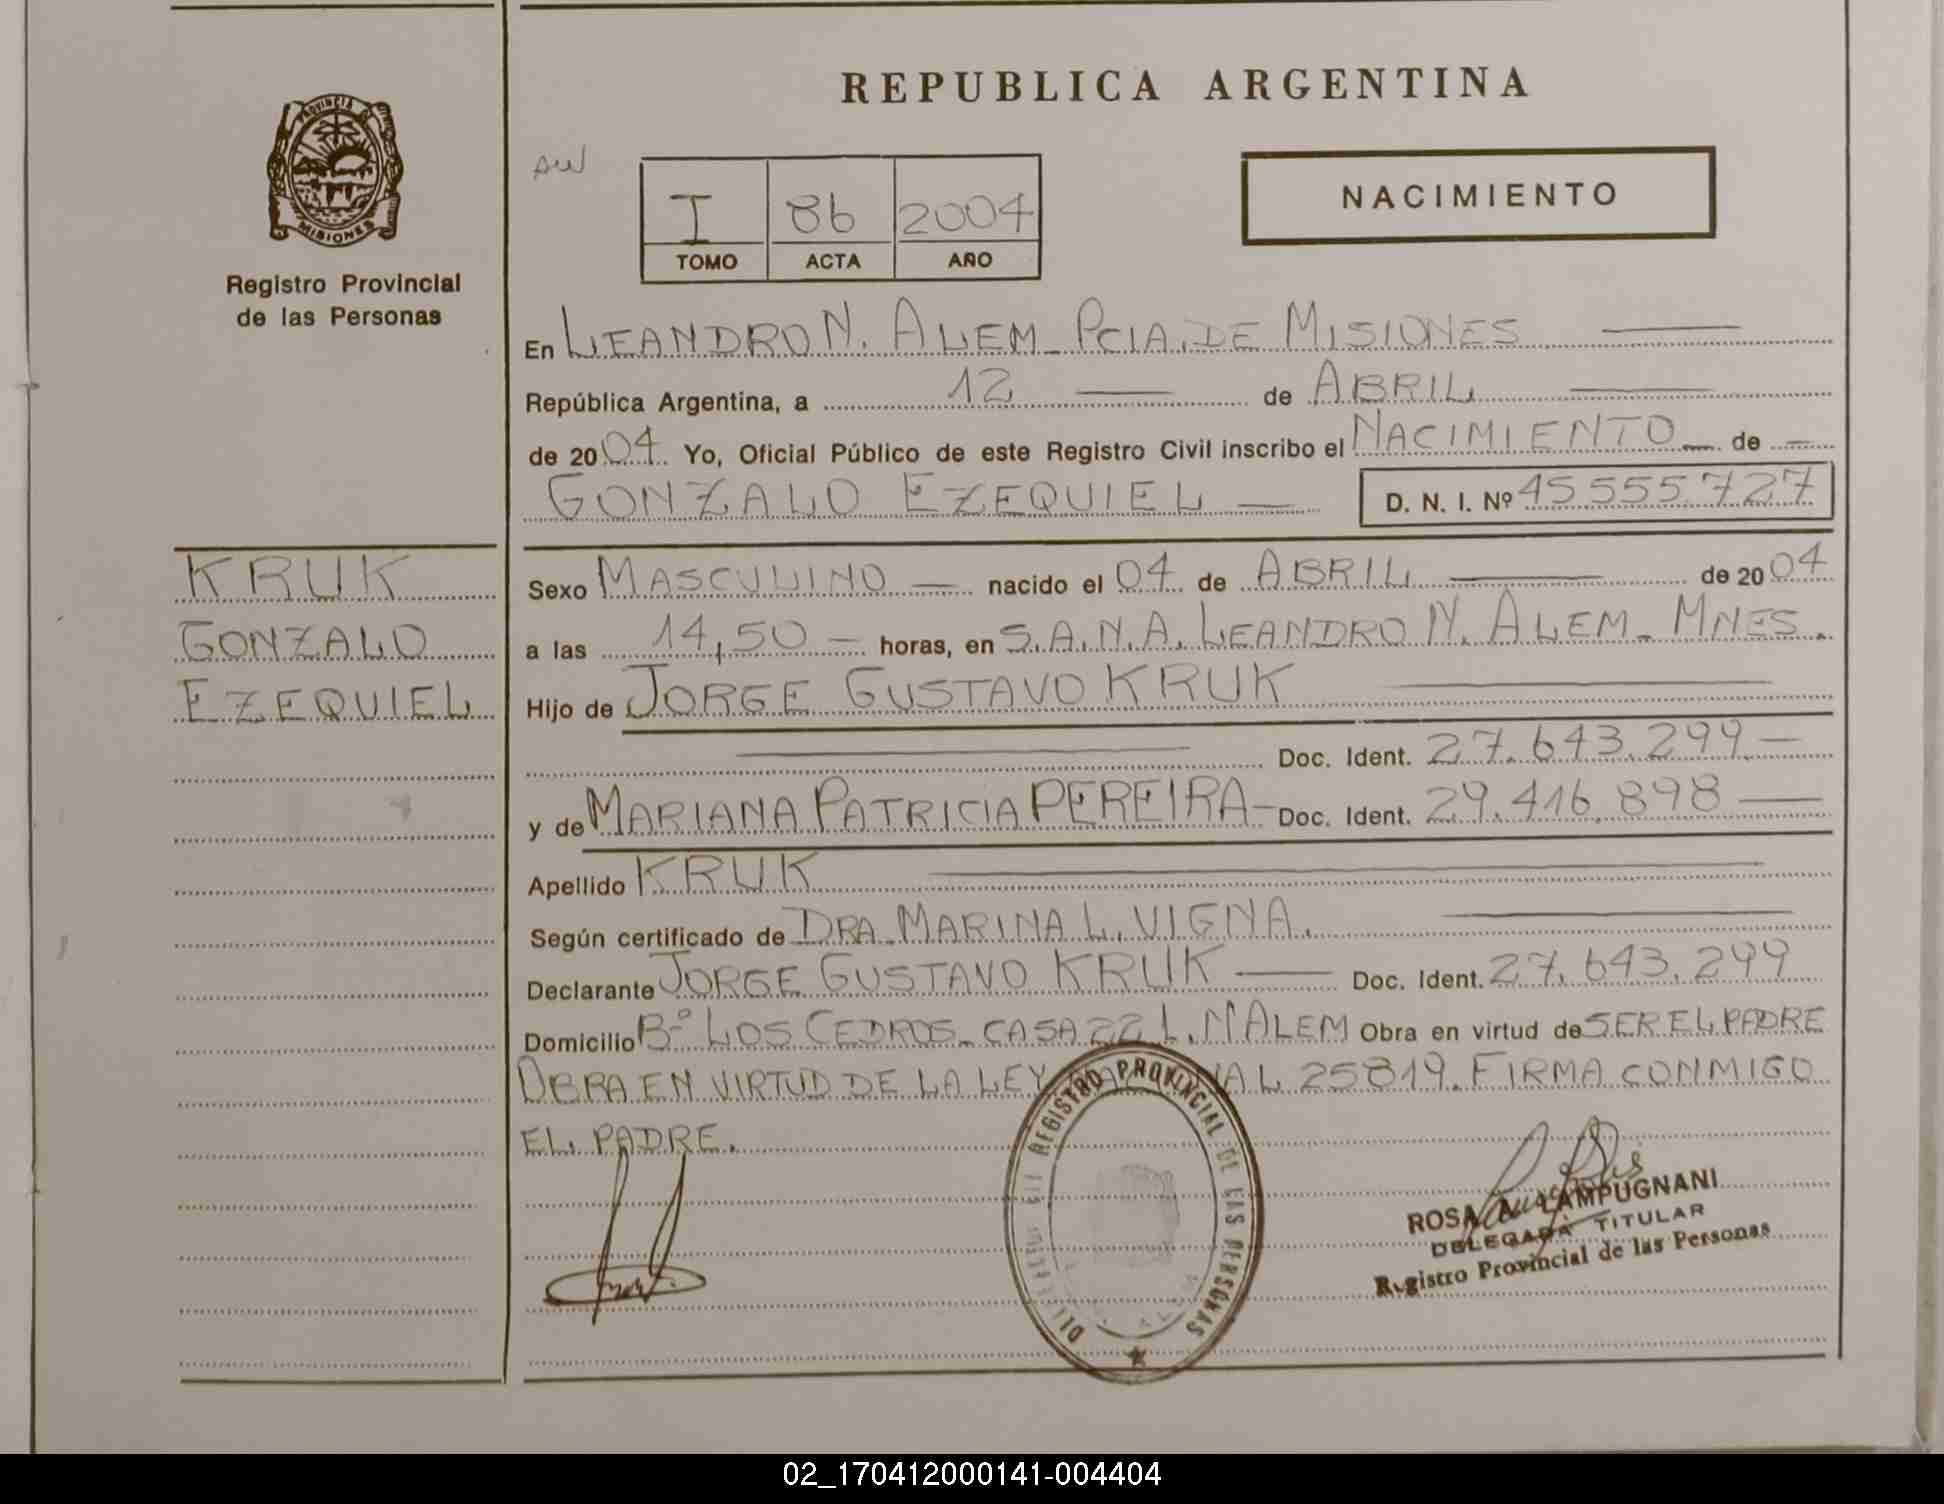 REPUBLICA ARGENTINA
PROVINCIA DE
MISIONES
Registro Provincial
de las Personas
AW
I 86 2004
TOMO ACTA AÑO
NACIMIENTO
En LEANDRO N. ALEM - PCIA. DE MISIONES
República Argentina, a 12 de ABRIL
de 2004 Yo, Oficial Público de este Registro Civil inscribo el NACIMIENTO de
GONZALO EZEQUIEL D. N. I. Nº 45555727
KRUK
GONZALO
EZEQUIEL
Sexo MASCULINO nacido el 04 de ABRIL de 2004
a las 14,50 horas, en S.A.N.A. LEANDRO N. ALEM - MNES.
Hijo de JORGE GUSTAVO KRUK
Doc. Ident. 27.643.299
y de MARIANA PATRICIA PEREIRA Doc. Ident. 29.416.898
Apellido KRUK
Según certificado de DRA. MARINA L. VIGNA.
Declarante JORGE GUSTAVO KRUK Doc. Ident. 27.643.299
Domicilio Bº LOS CEDROS - CASA 22 L. N ALEM Obra en virtud de SER EL PADRE
OBRA EN VIRTUD DE LA LEY 25819. FIRMA CONMIGO
EL PADRE.
REGISTRO PROVINCIAL DE LAS PERSONAS
ROSA A. LAMPUGNANI
DELEGADA TITULAR
Registro Provincial de las Personas
02_170412000141-004404